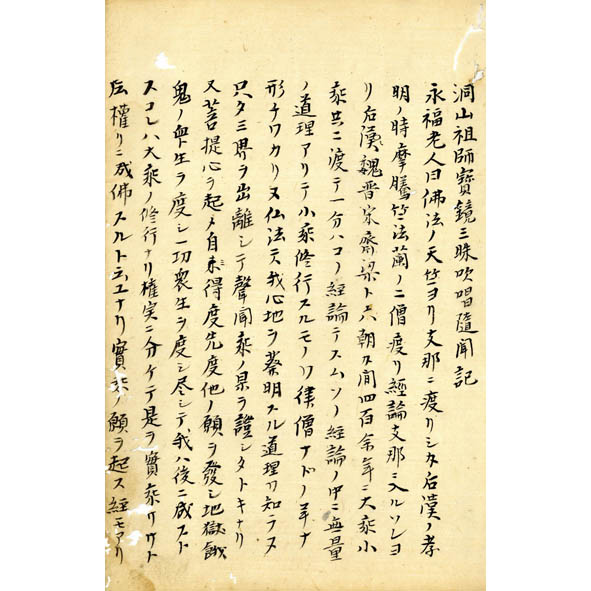 洞山祖師寳鏡三昧吹唱隨聞記
永福老人曰佛法ノ天竺ヨリ支那ニ渡リシハ后漢ノ孝
明ノ時摩騰竺法蘭ノ二僧渡リ經論支那ニ入ルソレヨ
リ后漢魏晋宋齋梁ト六朝ノ間四百余年ニ大乘小
乘共ニ渡テ一分ハコノ經論テスムソノ經論ノ中ニ無量
ノ道理アリテ小乘修行スルモノハ律僧ナドノ
形チワカリヌ仏法テ我心地ヲ發明スル道理ハ知ラヌ
只タ三界ヲ出離シテ聲聞乘ノ果ヲ證シタトキナリ
又菩提心ヲ起メ自未得度先度他ノ願ヲ發シ地獄餓
鬼ノ衆生ヲ度シ一切衆生ヲ度シ尽シテ我ハ後ニ成スト
スコレハ大乘ノ修行ナリ權実ニ分ケテ是ヲ實乘
權リニ成佛スルト云ナリ實乘ノ願ヲ起ス經モアリ